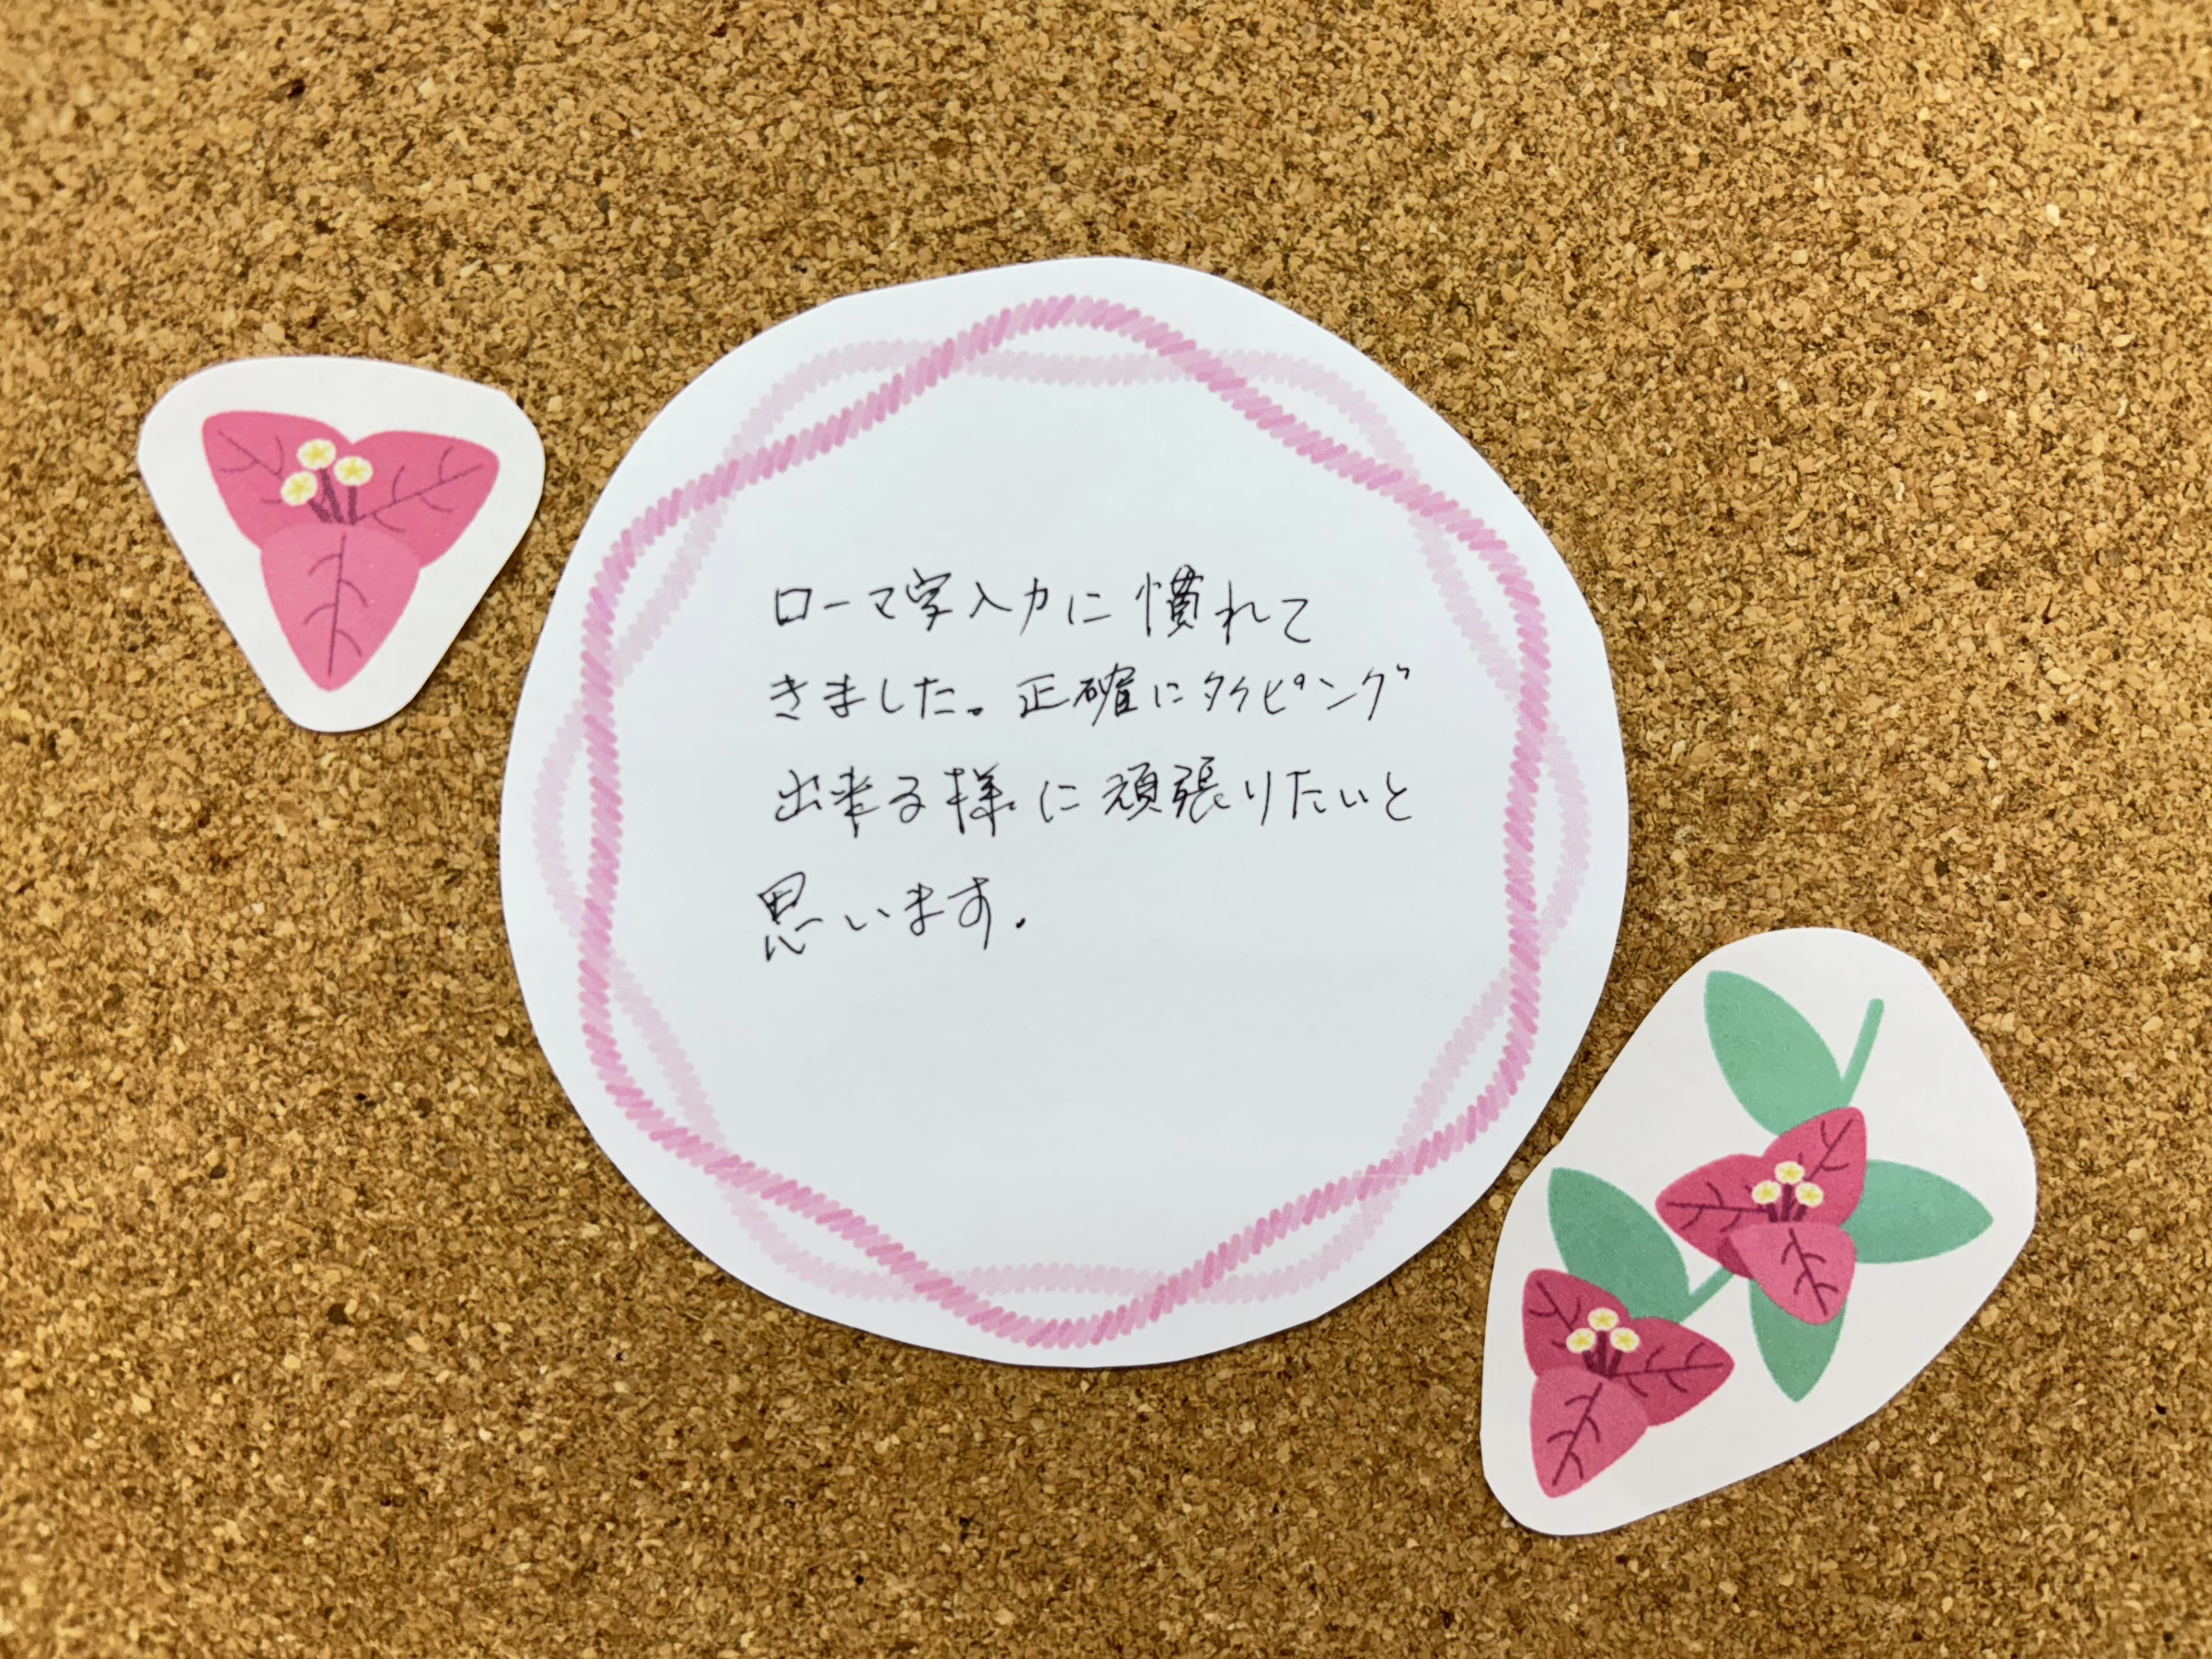 ローマ字入力に慣れて
きました。正確にタイピング
出来る様に頑張りたいと
思います.